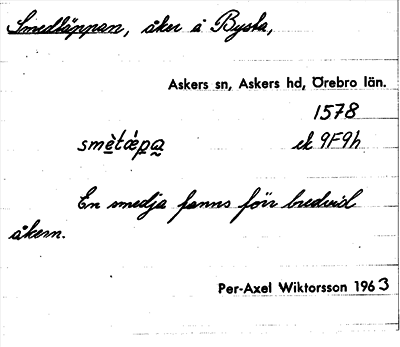 Smedtäppan, åker å Bysta,
Askers sn, Askers hd, Örebro län.
1578
smètǽpa̰ ek 9F9h
En smedja fanns förr bredvid
åkern.
Per-Axel Wiktorsson 1963